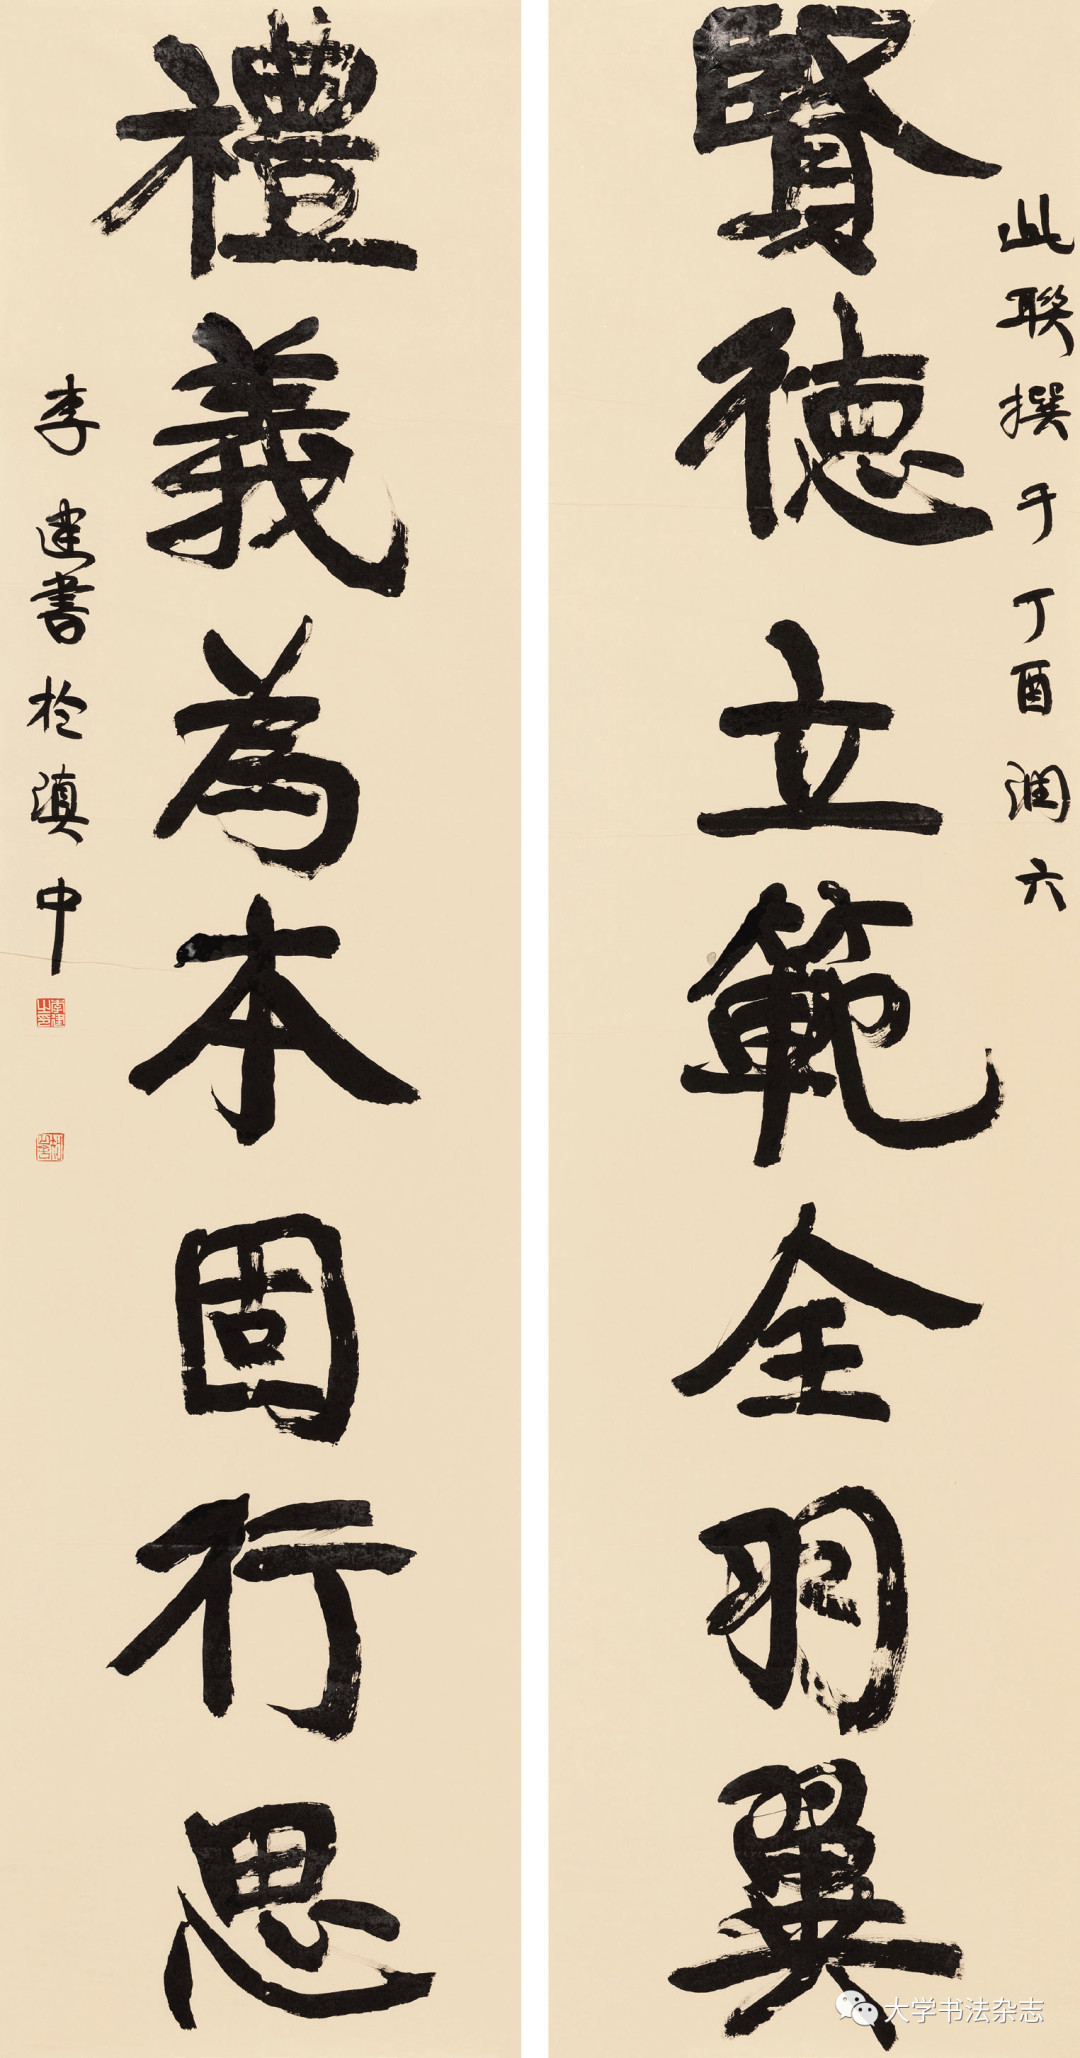 此聯撰于丁酉潤六
賢德立範全羽翼
禮義為本固行思
李建書於滇中
李建之印
大学书法杂志